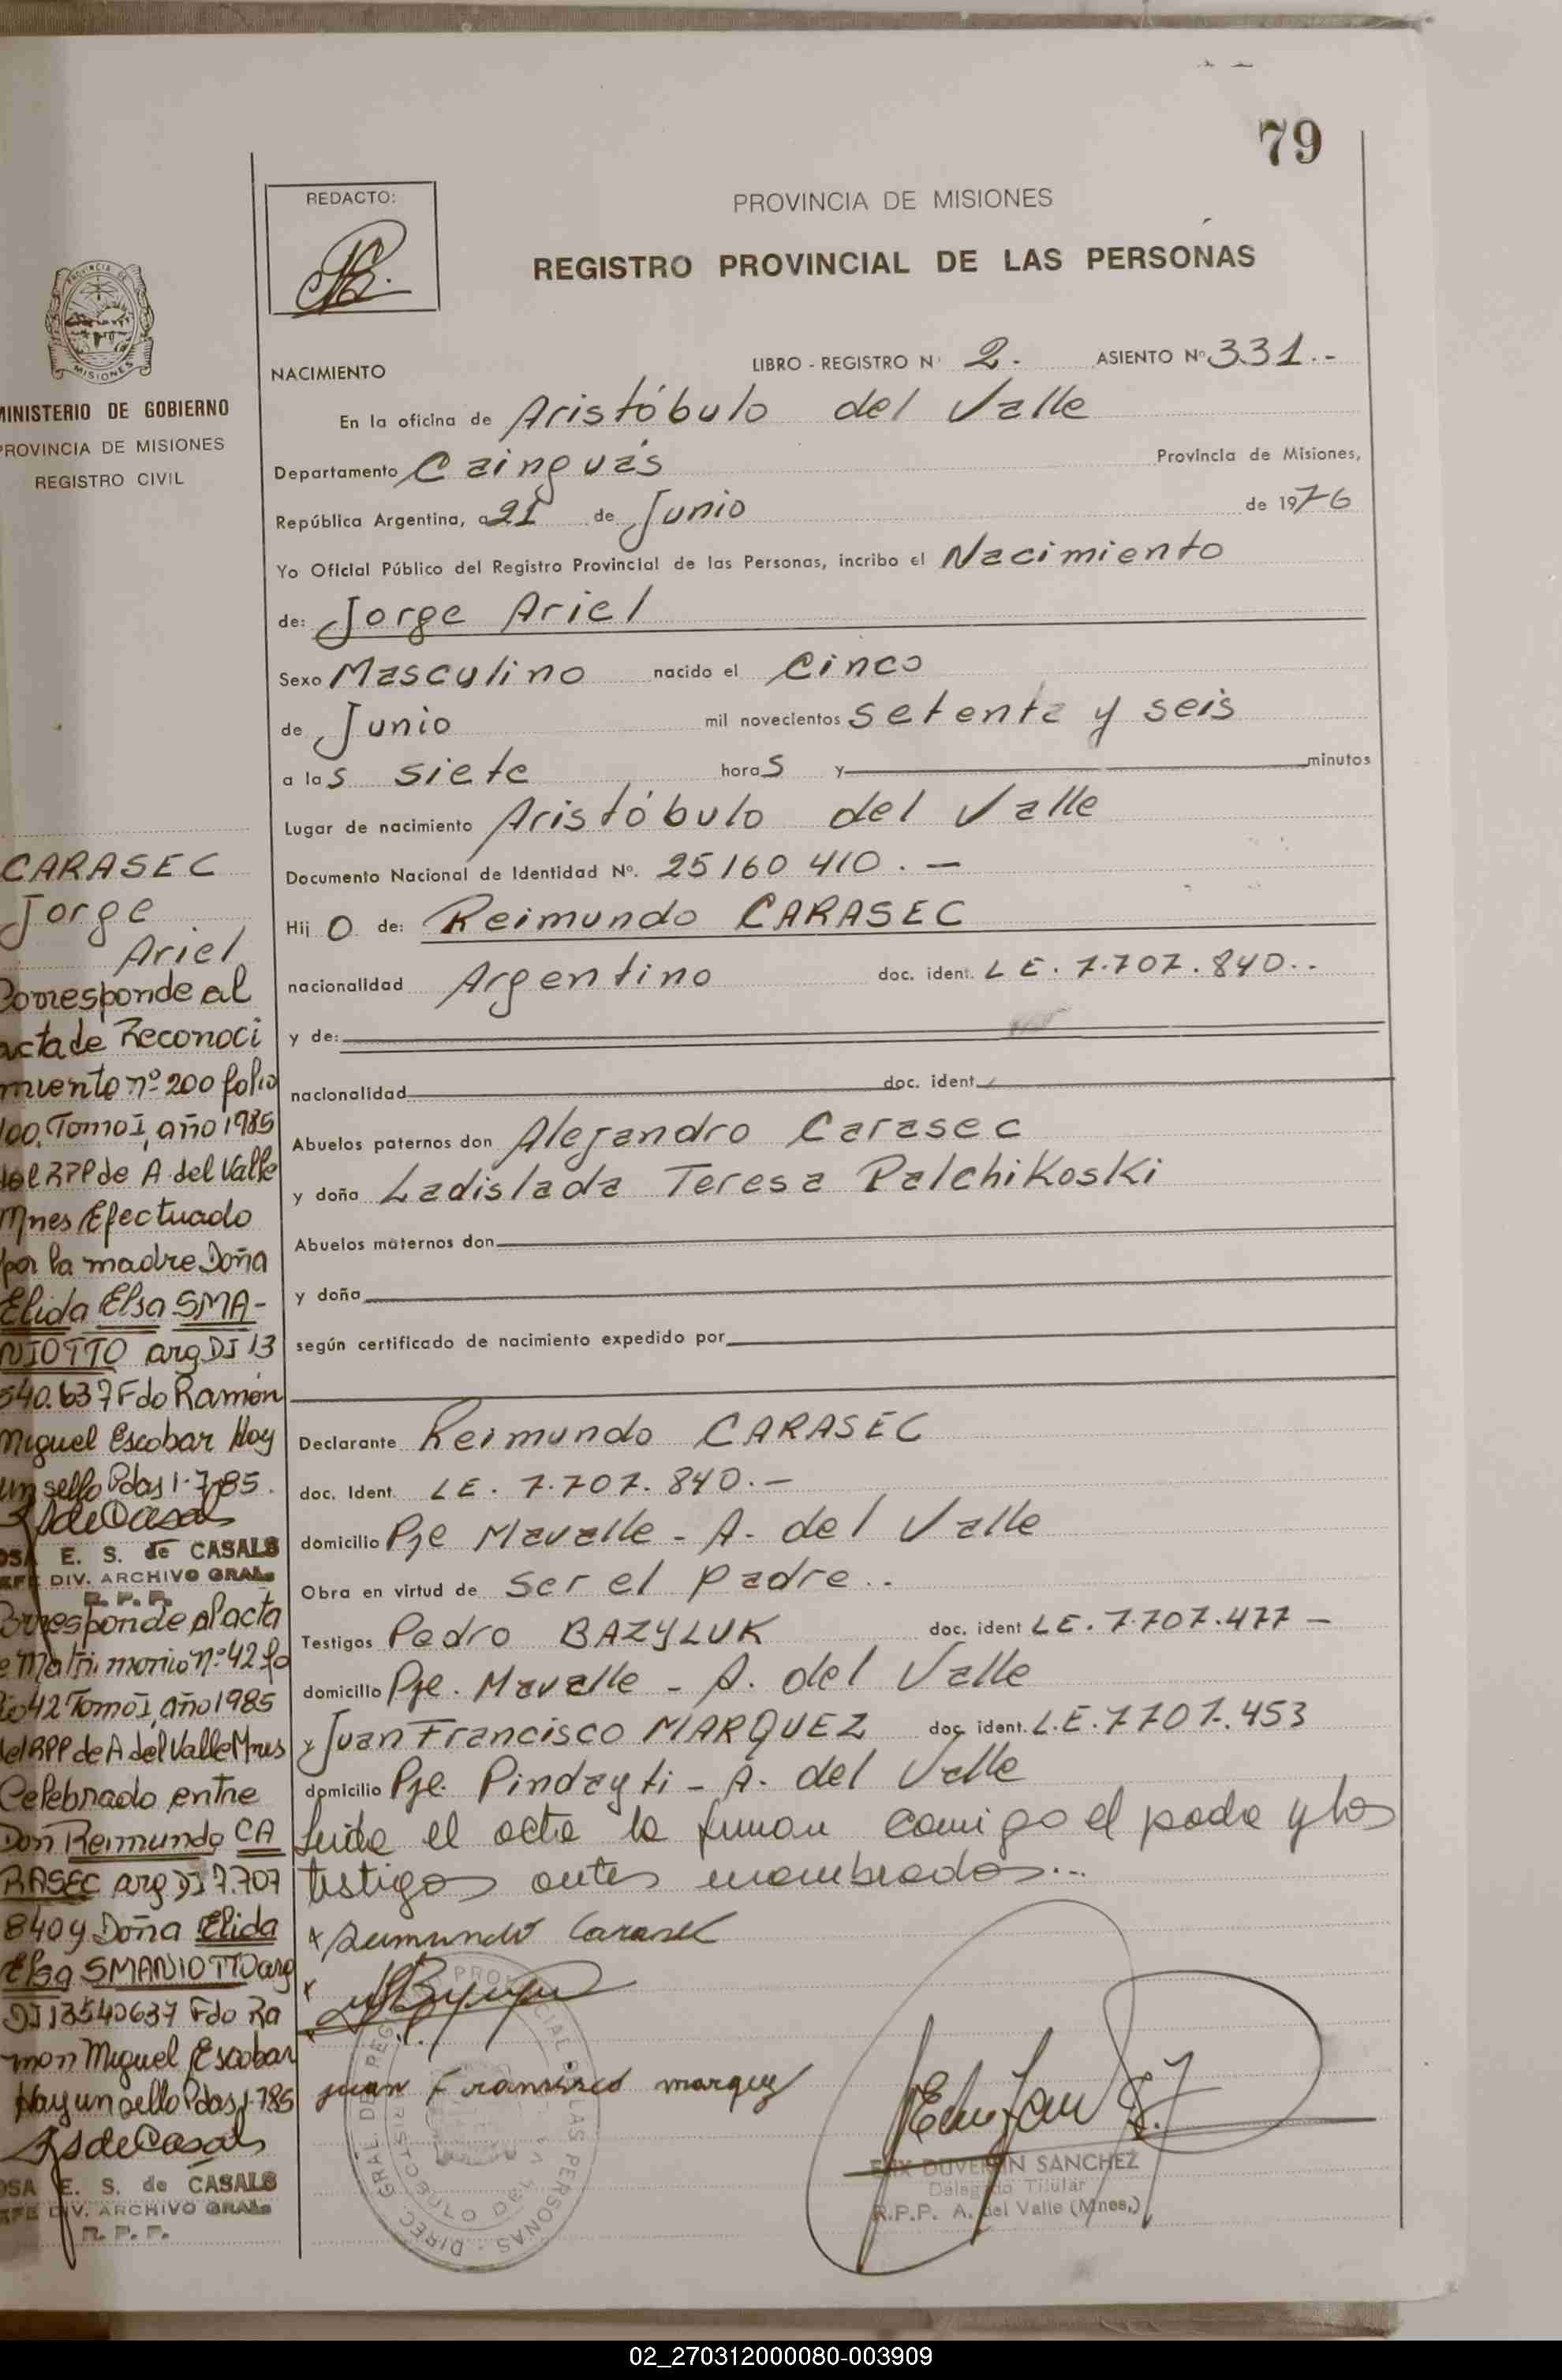 79
REDACTO:
PROVINCIA DE MISIONES
REGISTRO PROVINCIAL DE LAS PERSONAS
NACIMIENTO
LIBRO - REGISTRO Nº 2.- ASIENTO Nº 331.-
En la oficina de Aristóbulo del Valle
Departamento Cainguás Provincia de Misiones,
República Argentina, a 21 de Junio de 1976
Yo Oficial Público del Registro Provincial de las Personas, incribo el Nacimiento
de: Jorge Ariel
Sexo Masculino nacido el Cinco
de Junio mil novecientos setenta y seis
a las siete horas y minutos
Lugar de nacimiento Aristóbulo del Valle
Documento Nacional de Identidad Nº. 25160 410.—
Hijo de: Reimundo CARASEC
nacionalidad Argentino doc. ident. LE. 7.707.840..
y de:
nacionalidad doc. ident.
Abuelos paternos don Alejandro Carasec
y doña Ladislada Teresa PalchiKosKi
Abuelos maternos don
y doña
según certificado de nacimiento expedido por
Declarante Reimundo CARASEC
doc. Ident. LE. 7.707.840.—
domicilio Pje Mavalle - A. del Valle
Obra en virtud de ser el padre..
Testigos Pedro BAZYLUK doc. ident LE. 7.707.477 —
domicilio Pje. Mavalle - A. del Valle
y Juan Francisco MARQUEZ doc. ident. L.E. 7707.453
domicilio Pje. Pindayti - A. del Valle
Leida el acta la firman comigo el padre y los
testigos antes nombrados...
Reimundo Carasek
juan Francisco marquez
SANCHEZ
Delegado Titular
R.P.P. A. del Valle (Mnes.)
MINISTERIO DE GOBIERNO
PROVINCIA DE MISIONES
REGISTRO CIVIL
CARASEC
Jorge
Ariel
Corresponde al
acta de Reconoci
miento nº 200 folio
100, Tomo I, año 1985
del RPP de A. del Valle
Mnes Efectuado
por la madre Doña
Elida Elsa SMA-
NIOTTO arg DI 13
540.637 Fdo Ramón
Miguel Escobar Hay
un sello Pdas 1-7-85.
E. S. de CASALS
JEFE DIV. ARCHIVO GRAL.
R. P. P.
Corresponde al acta
de Matrimonio nº 42 fo
lio 42 Tomo I, año 1985
del RPP de A del Valle Mnes
Celebrado entre
Don Reimundo CA
RASEC arg DI 7.707
840 y Doña Elida
Elsa SMANIOTTO arg
DI 13540637 Fdo Ra
mon Miguel Escobar
Hay un sello Pdas 1-785
E. S. de CASALS
JEFE DIV. ARCHIVO GRAL.
R. P. P.
02_270312000080-003909